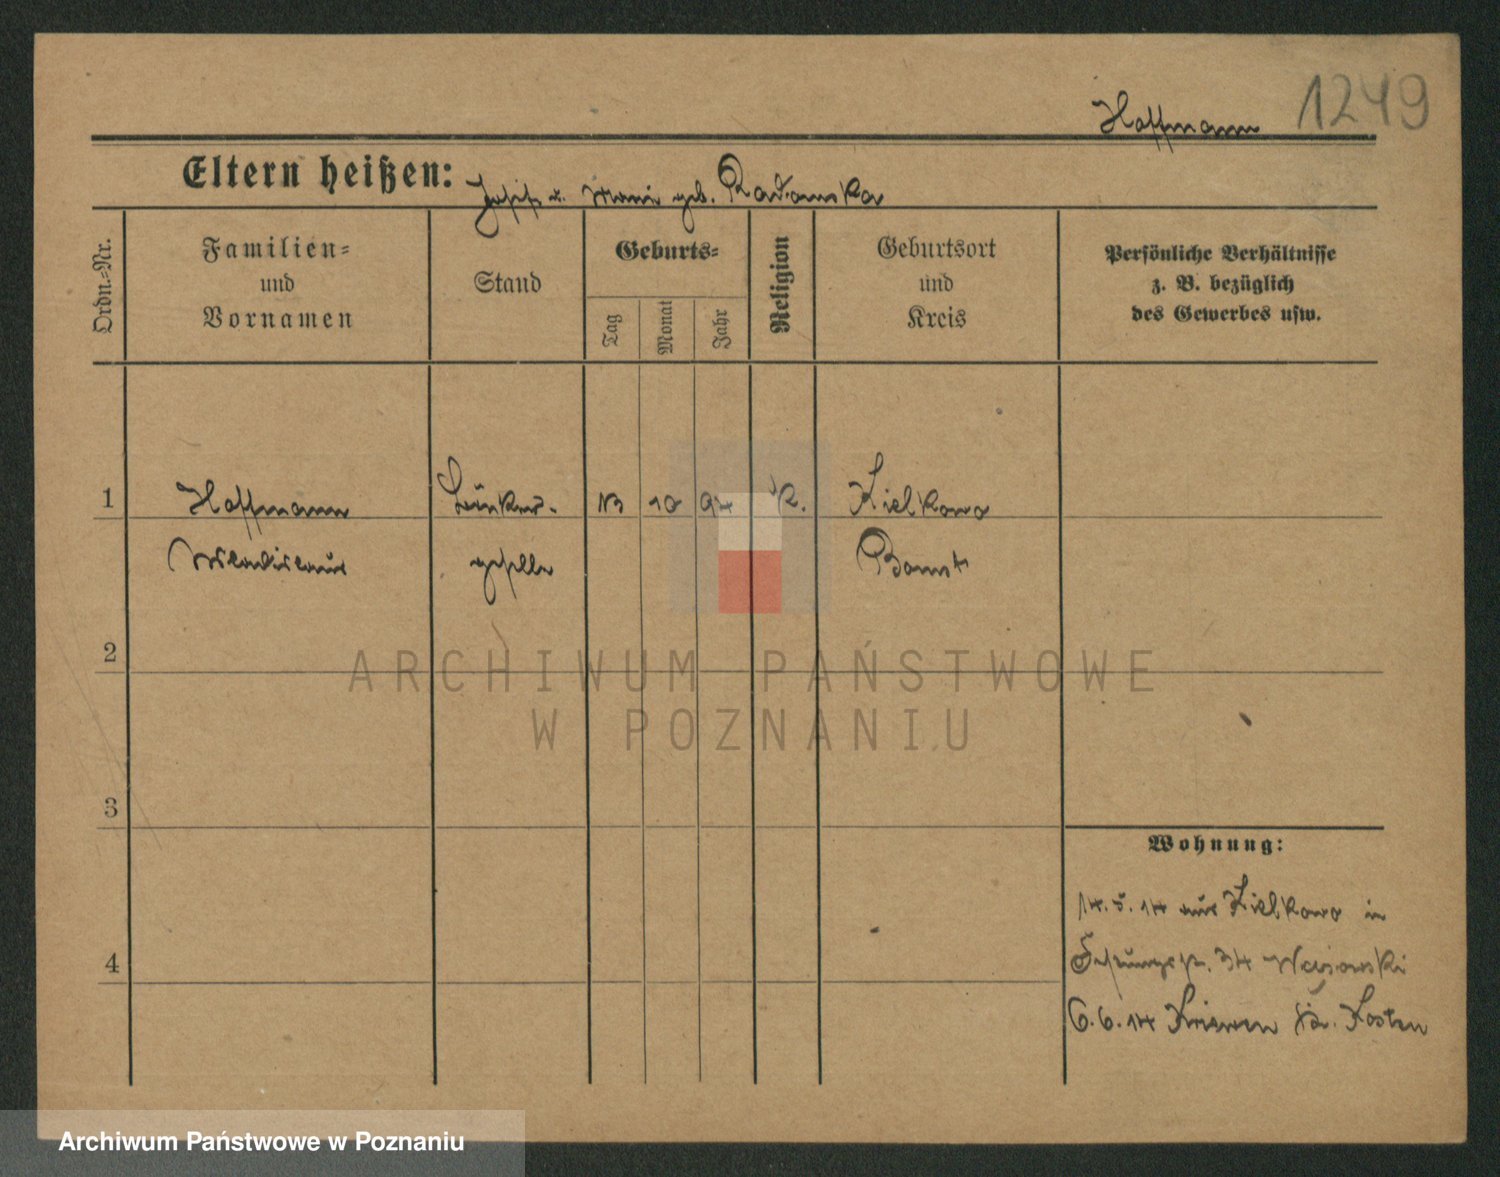 1249
Hoffmann
Eltern heißen: Josef u. Marie geb. Radomska
Ordn.-Nr.
Familien-
und
Vornamen
Stand
Geburts-
Tag
Monat
Jahr
Religion
Geburtsort
und
Kreis
Persönliche Verhältnisse
z. B. bezüglich
des Gewerbes usw.
1 Hoffmann 10 94 K. Kielkowo
Wladislaus geselle Bomst
2
ARCHIWUM PAŃSTWOWE
W POZNANIU
3
Wohnung:
14. 5. 14 aus Kielkowo in
4
34
6. 6. 14 Kriewen Kr. Kosten
Archiwum Państwowe w Poznaniu